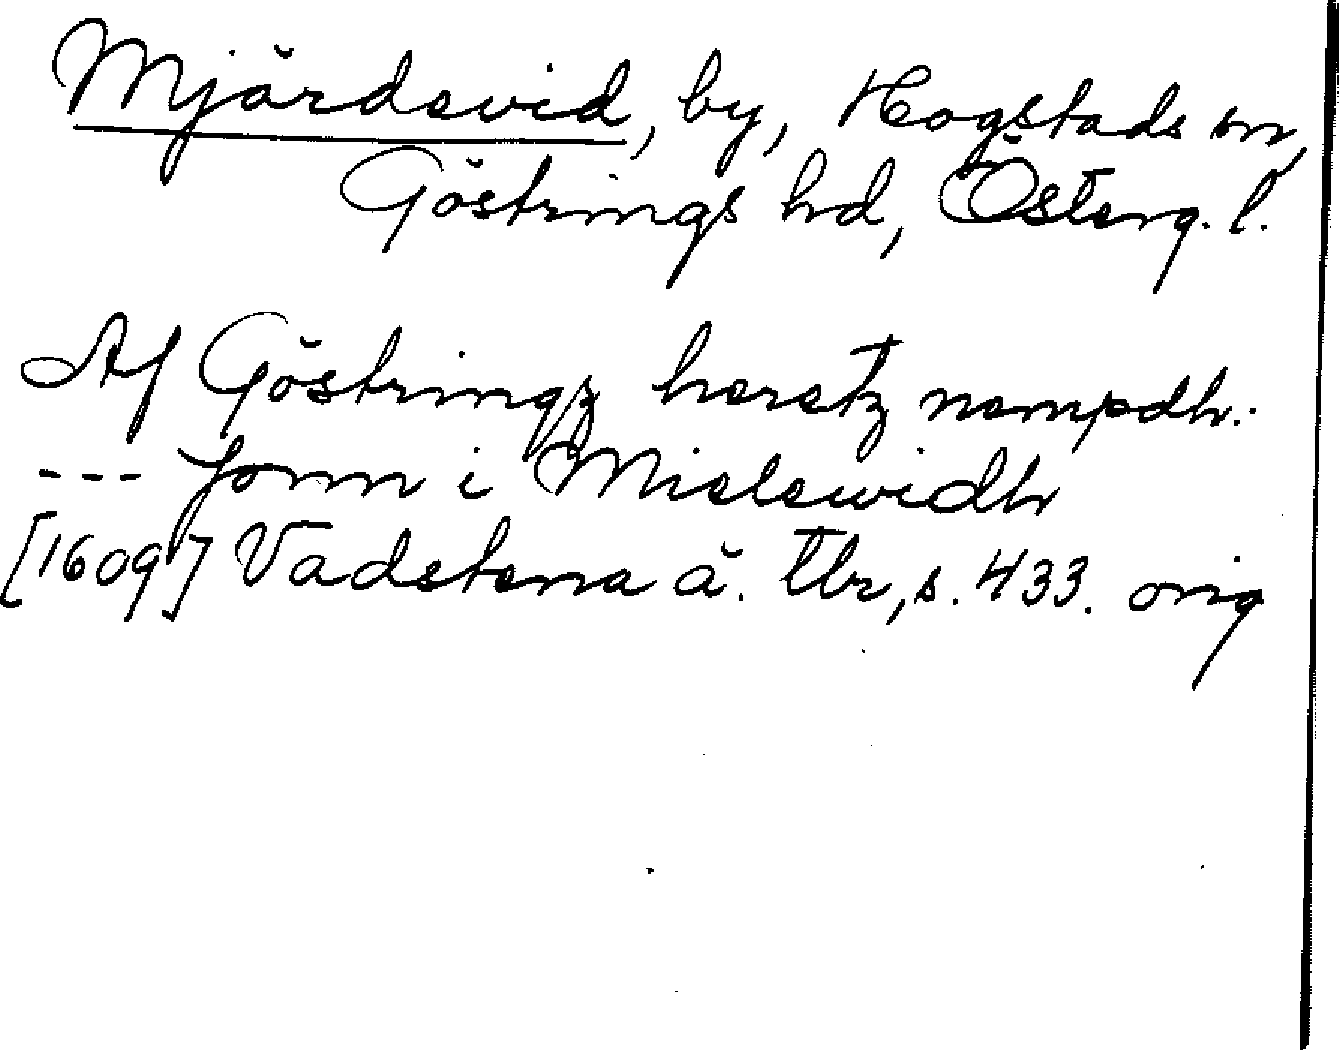 Mjärdevid, by, Hogstads sn,
Göstrings hd, Österg. l.
Af Göstringz heretz nempdh.
--- Jonn i Mielewidh
[1609] Vadstena ä. tbr, s. 433. orig